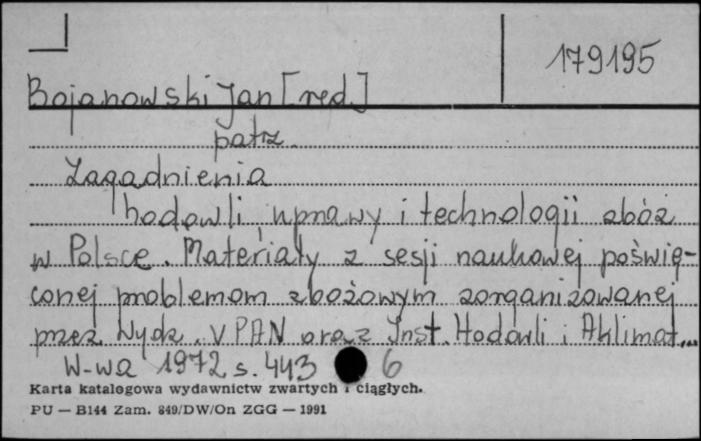 179195
Bojanowski Jan [red.]
patrz
Zagadnienia
hodowli, uprawy i technologii zbóż
w Polsce. Materiały z sesji naukowej poświę-
conej problemom zbożowym zorganizowanej
przez Wydz. V PAN oraz Inst. Hodowli i Aklimat...
W-wa 1972 s. 443 6
Karta katalogowa wydawnictw zwartych i ciągłych.
PU — B144 Zam. 849/DW/On ZGG — 1991